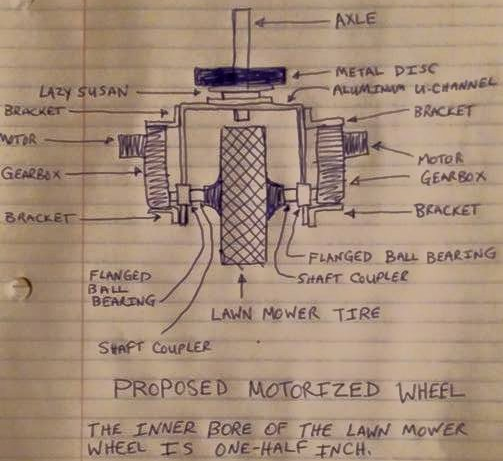 AXLE
METAL DISC
LAZY SUSAN
ALUMINUM U-CHANNEL
BRACKET
BRACKET
MOTOR
MOTOR
GEARBOX
GEARBOX
BRACKET
BRACKET
FLANGED BALL BEARING
FLANGED
BALL
BEARING
SHAFT COUPLER
LAWN MOWER TIRE
SHAFT COUPLER
PROPOSED MOTORIZED WHEEL
THE INNER BORE OF THE LAWN MOWER
WHEEL IS ONE-HALF INCH.